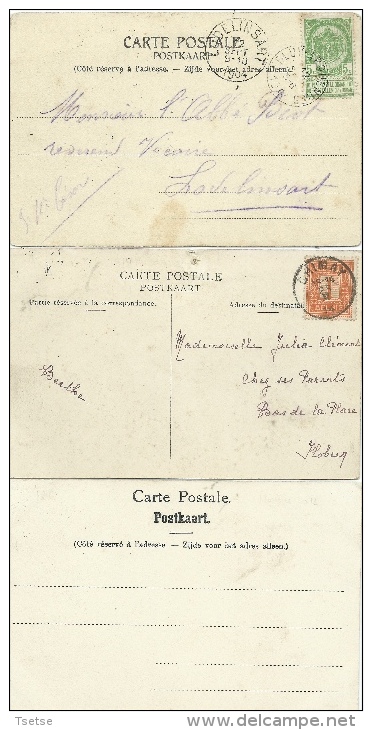 CARTE POSTALE
POSTKAART
(Côté réservé à l'adresse. — Zijde voor het adres alleen.)
1904
Monsieur l'Abbé
révérend Vicaire
Lodelinsart
CARTE POSTALE
POSTKAART
Partie réservée à la correspondance.
Adresse du destinataire
CHIMAY
Mademoiselle Julia Clément
Berthe
Chez ses Parents
Bas de la Place
Flobecq
Carte Postale.
Postkaart.
(Côté réservé à l'adresse — Zijde voor het adres alleen.)
Tsetse
delcampe.net